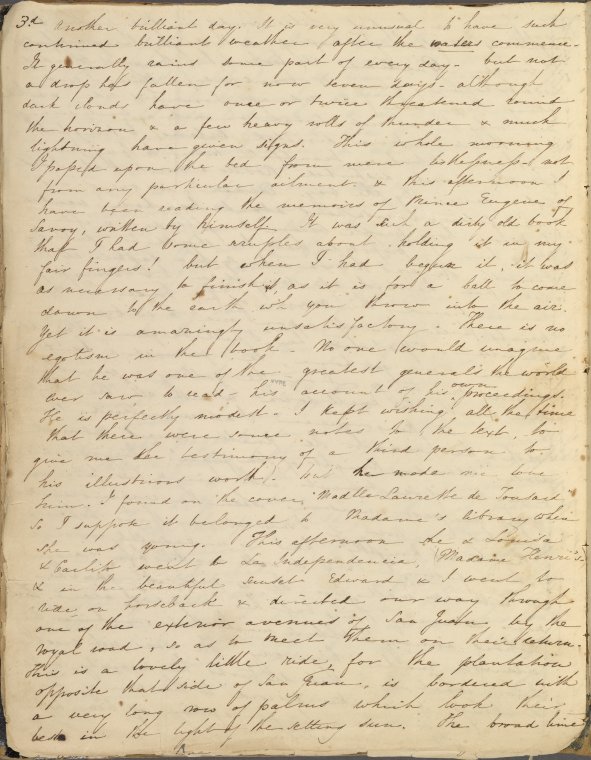 3d Another brilliant day. It is very unusual to have such
continued brilliant weather after the waters commence.
It generally rains some part of every day - but not
a drop has fallen for now seven days - although
dark clouds have once or twice threatened round
the horizon & a few heavy rolls of thunder & much
lightning have given signs. This whole morning
I passed upon the bed from mere listlessness - not
from any particular ailment & this afternoon I
have been reading the memoires of Prince Eugene of
Savoy, written by himself. It was such a dirty old book
that I had some scruples about holding it in my
fair fingers! but when I had begun it, it was
as necessary to finish it as it is for a ball to come
down to the earth wh you throw into the air.
Yet it is amazingly unsatisfactory. There is no
egotism in the book. No one would imagine
that he was one of the greatest generals the world
ever saw to read his account of his own proceedings.
He is perfectly modest. I kept wishing all the time
that there were some notes to the text, to
give me the testimony of a third person to
his illustrious worth. but he made me love
him. I found on the cover, Madlle Laurette de Tousard
so I suppose it belonged to Madame's library when
she was young. This afternoon she & Louisa
& Carlito went to La Independencia, (Madame Henri's
& in the beautiful sunset Edward & I went to
ride on horseback & directed our way through
one of the exterior avenues of San Juan by the
royal road, so as to meet them on their return.
This is a lovely little ride, for the plantation
opposite that side of San Juan, is bordered with
a very long row of palms which look their
best in the light of the setting sun. The broad lines